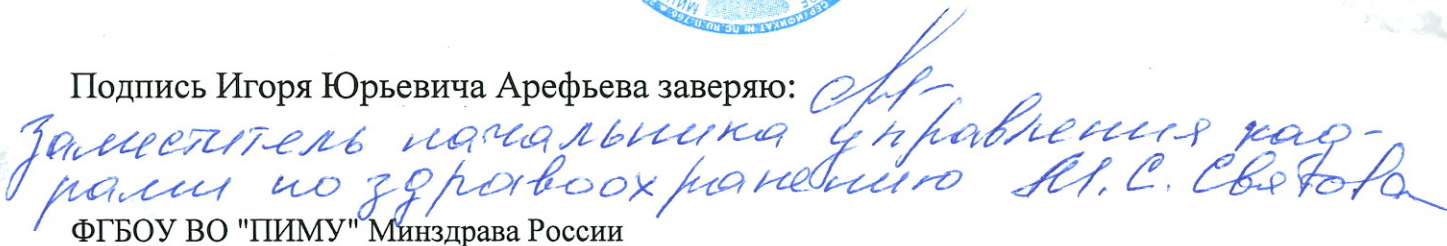 СЕРТИФИКАТ № ПС.RU.П.766
Подпись Игоря Юрьевича Арефьева заверяю:
Заместитель начальника управления кад-
рами по здравоохранению М.С. Святова
ФГБОУ ВО "ПИМУ" Минздрава России